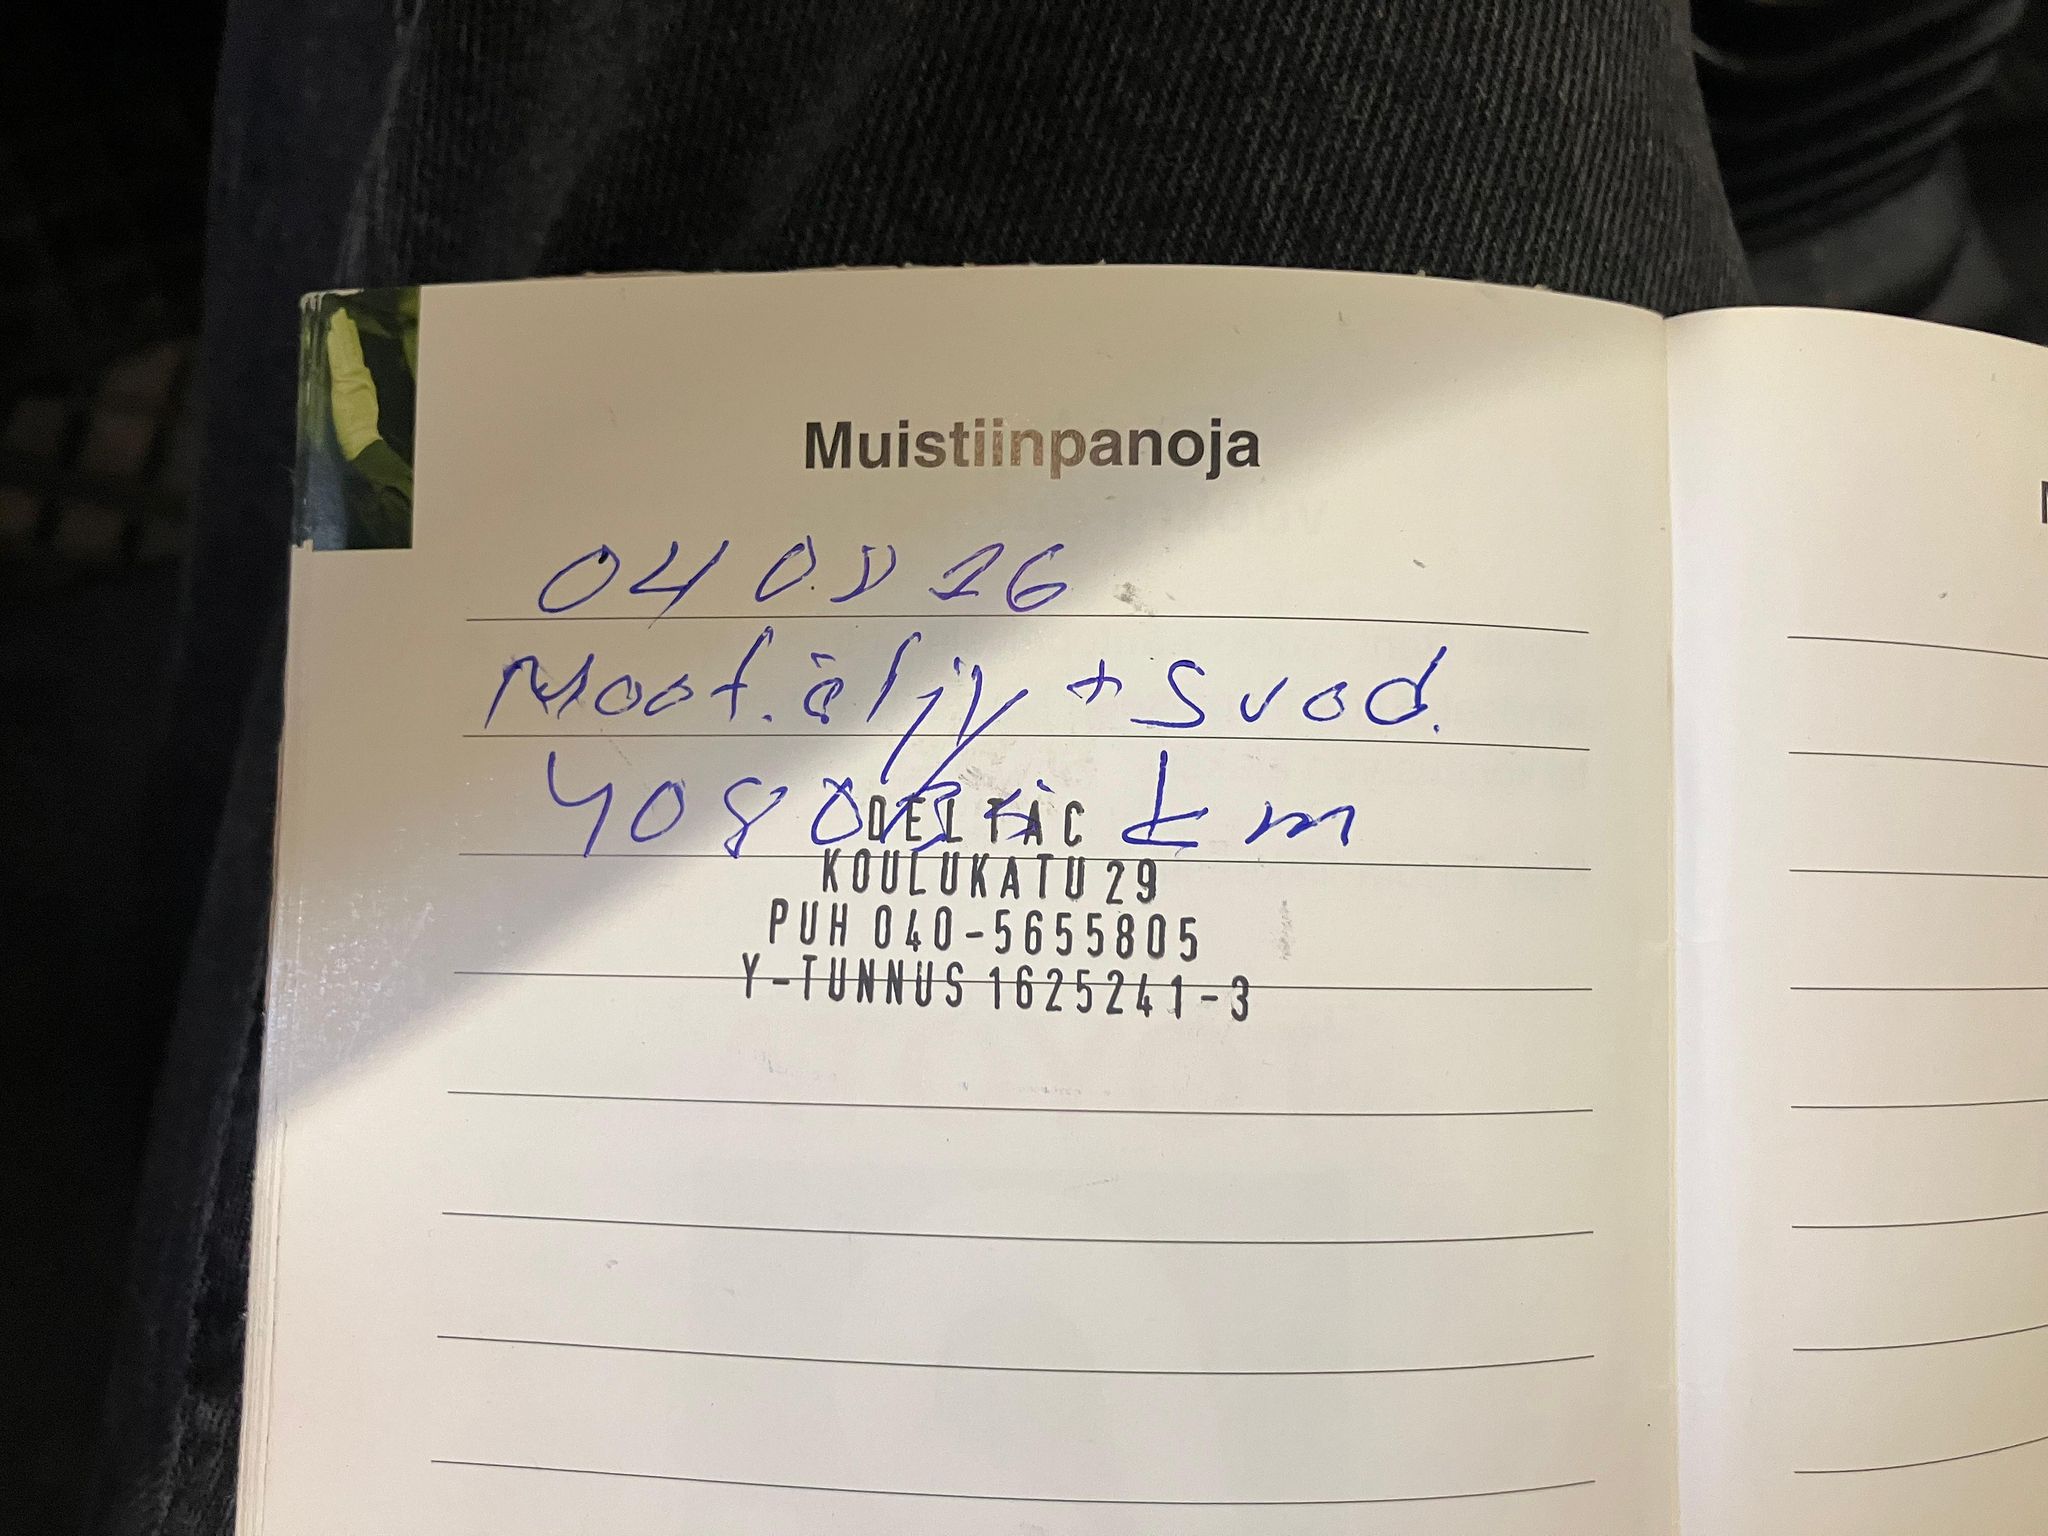 Muistiinpanoja
04 0.8 16
Moot. öljy + Suod.
km
DELTAC
KOULUKATU 29
PUH 040-5655805
Y-TUNNUS 1625241-3